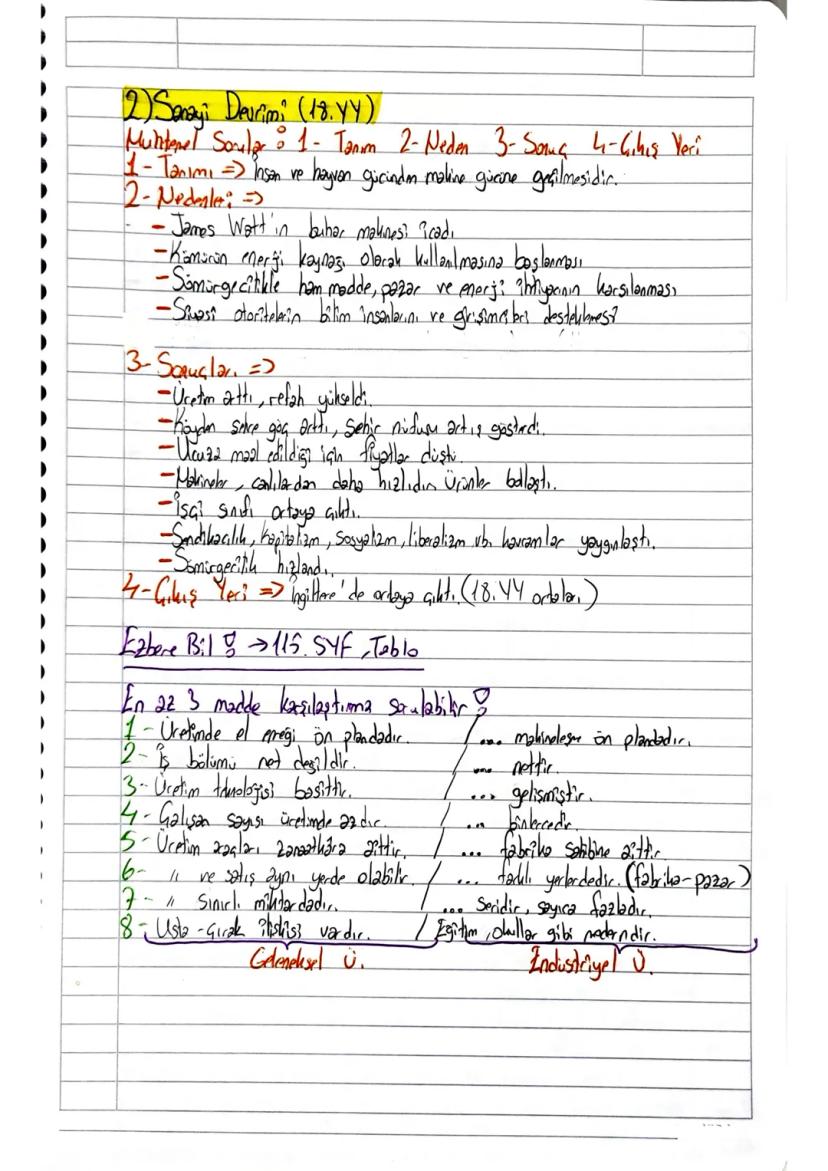 2) Sanayi Devrimi (18.YY)
Muhtemel Sorular : 1- Tanım 2- Neden 3- Sonuç 4- Çıkış Yeri
1- Tanımı => İnsan ve hayvan gücünden makine gücüne geçilmesidir.
2- Nedenleri =>
- James Watt'ın buhar makinesi icadı
- Kömürün enerji kaynağı olarak kullanılmasına başlanması
- Sömürgecilikle ham madde, pazar ve enerji ihtiyacının karşılanması
- Siyasi otoritelerin bilim insanlarını ve girişimcileri desteklemesi
3- Sonuçları =>
- Üretim arttı, refah yükseldi.
- Köyden şehre göç arttı, şehir nüfusu artış gösterdi.
- Ucuza mal edildiği için fiyatlar düştü.
- Makineler, canlılardan daha hızlıdır. Ürünler bollaştı.
- İşçi sınıfı ortaya çıktı.
- Sendikacılık, kapitalizm, sosyalizm, liberalizm vb. kavramlar yaygınlaştı.
- Sömürgecilik hızlandı.
4- Çıkış Yeri => İngiltere'de ortaya çıktı. (18.YY ortaları)
Ezbere Bil ! → 115. SYF, Tablo
En az 3 madde karşılaştırma sorulabilir !
1- Üretimde el emeği ön plandadır. / ... makineleşme ön plandadır.
2- İş bölümü net değildir. / ... nettir.
3- Üretim teknolojisi basittir. / ... gelişmiştir.
4- Çalışan sayısı üretimde azdır. / ... binlercedir.
5- Üretim araçları zanaatkâra aittir. / ... fabrika sahibine aittir.
6- " ve satış aynı yerde olabilir. / ... farklı yerlerdedir. (fabrika-pazar)
7- " sınırlı miktardadır. / ... Seridir, sayıca fazladır.
8- Usta-çırak ilişkisi vardır. / Eğitim, okullar gibi
Geleneksel Ü. Endüstriyel Ü.